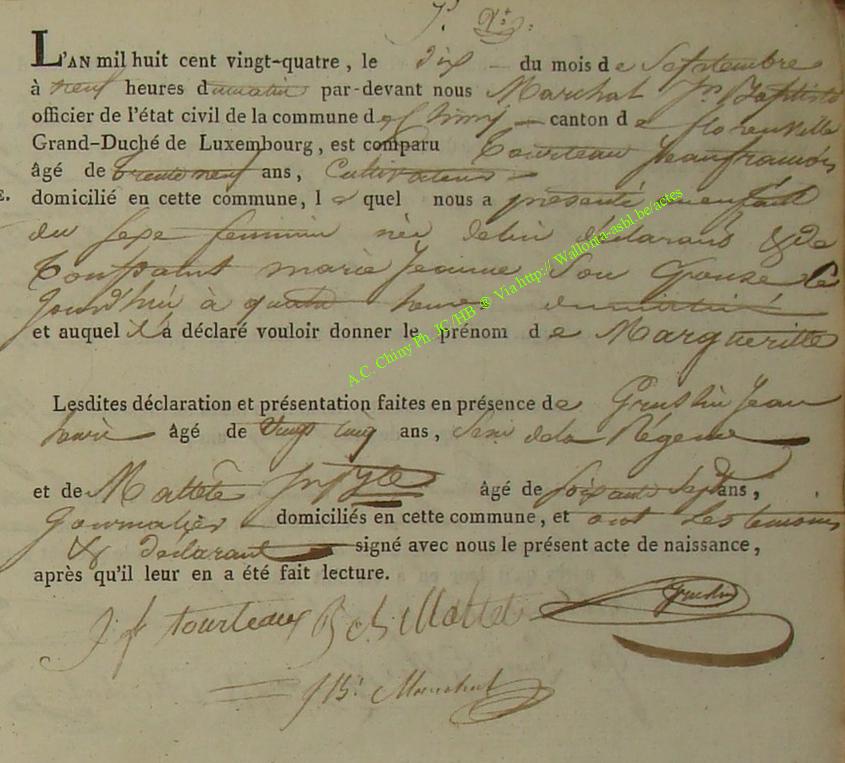 L'AN mil huit cent vingt-quatre, le dix du mois de Septembre
à neuf heures du matin par-devant nous Marchal Jn Baptiste
officier de l'état civil de la commune de Chiny canton de florenville
Grand-Duché de Luxembourg, est comparu Tourteau Jean françois
âgé de trente neuf ans, Cultivateur
E. domicilié en cette commune, le quel nous a présenté un enfant
du sexe feminin née de lui déclarant & de
marie Jeanne Son Epouse Ce
Jourd'hui à quatre heures du matin
et auquel il a déclaré vouloir donner le prénom de Margueritte
Lesdites déclaration et présentation faites en présence de Jean
henri âgé de vingt cinq ans, de la Régence
et de Mattete Jn Bte âgé de soixante Sept ans,
domiciliés en cette commune, et ont Les temoins
& déclarant signé avec nous le présent acte de naissance,
après qu'il leur en a été fait lecture.
J f tourteaux Mattete
JBt Marchal
A.C. Chiny Ph. JC /HB @ Via http:// Wallonia-asbl.be/actes